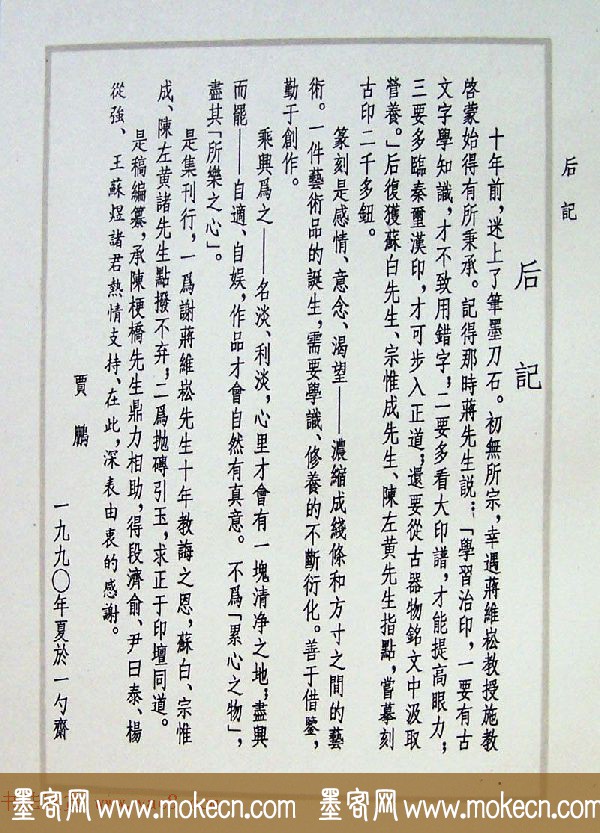 后記
后記
十年前，迷上了筆墨刀石。初無所宗，幸遇蔣維崧教授施教
啓蒙始得有所秉承。記得那時蔣先生説：「學習治印，一要有古
文字學知識，才不致用錯字；二要多看大印譜，才能提高眼力；
三要多臨秦璽漢印，才可步入正道；還要從古器物銘文中汲取
營養。」后復獲蘇白先生、宗惟成先生、陳左黄先生指點，嘗摹刻
古印二千多鈕。
篆刻是感情、意念、渴望——濃缩成綫條和方寸之間的藝
術。一件藝術品的誕生，需要學識、修養的不斷衍化。善于借鑒，
勤于創作。
乘興爲之——名淡、利淡，心里才會有一塊清净之地；盡興
而罷——自適、自娱，作品才會自然有真意。不爲「累心之物」，
盡其「所樂之心」。
是集刊行，一爲謝蔣維崧先生十年教誨之恩，蘇白、宗惟
成、陳左黄諸先生點撥不弃；二爲抛磚引玉，求正于印壇同道。
是稿編纂，承陳梗橋先生鼎力相助，得段濟俞、尹曰泰、楊
從強、王蘇煜諸君熱情支持、在此，深表由衷的感謝。
賈鵬
一九九〇年夏於一勺齋
墨客网 www.mokecn.com 墨客网 www.mokecn.com